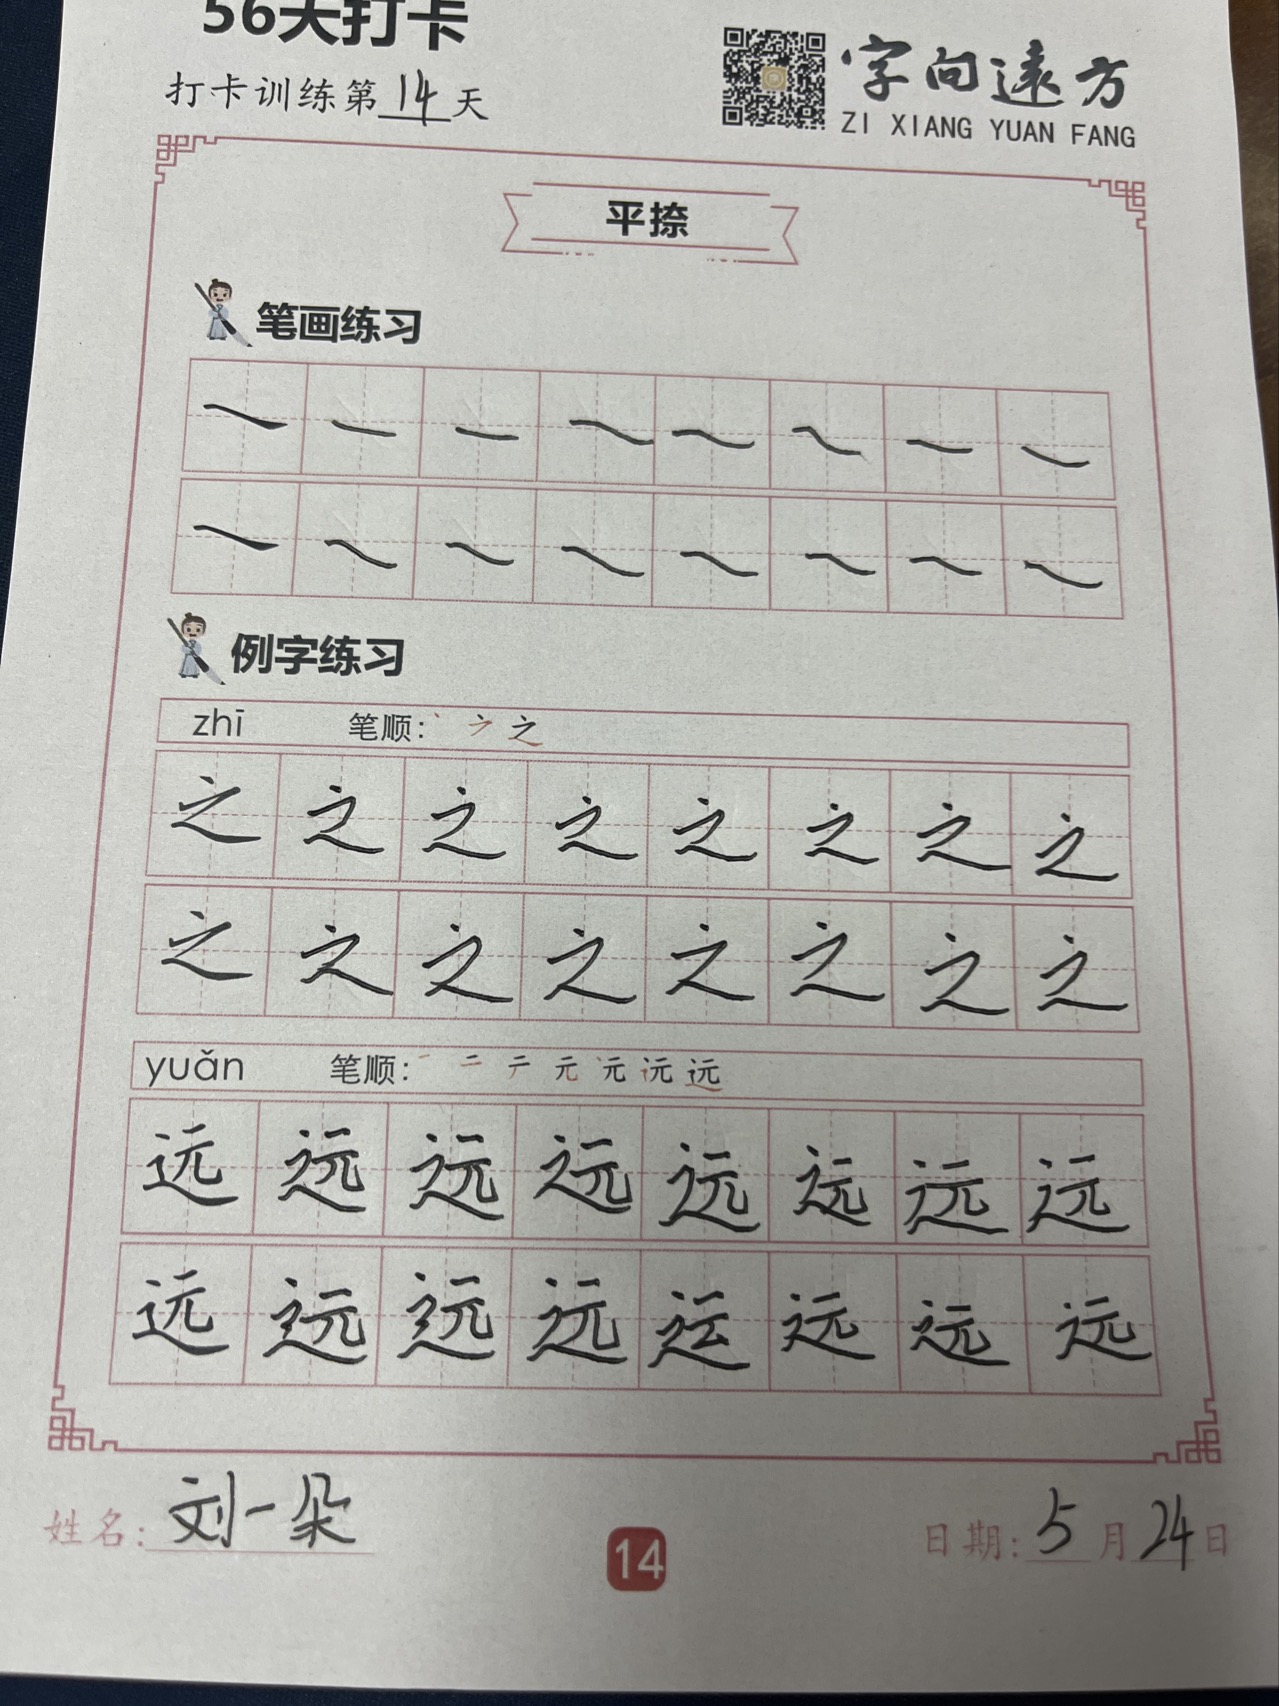 56天打卡
打卡训练第14天
字向远方
ZI XIANG YUAN FANG
平捺
笔画练习
㇏ ㇏ ㇏ ㇏ ㇏ ㇏ ㇏ ㇏
㇏ ㇏ ㇏ ㇏ ㇏ ㇏ ㇏ ㇏
例字练习
zhī 笔顺: 丶 之
之 之 之 之 之 之 之 之
之 之 之 之 之 之 之 之
yuǎn 笔顺: 一 二 元 元 远 远
远 远 远 远 远 远 远 远
远 远 远 远 运 远 远 远
姓名: 刘一朵
14
日期: 5月24日